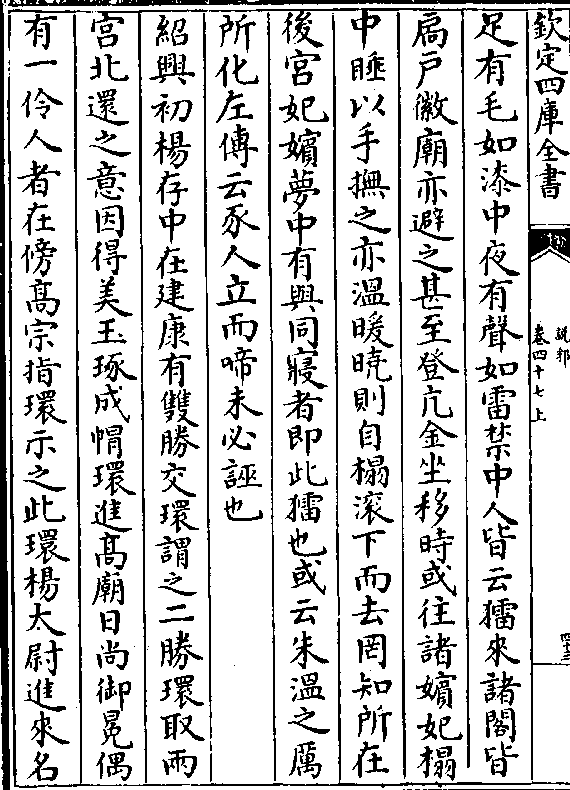 欽定四庫全書
說郛
卷四十七上
四十三
足有毛如漆中夜有聲如雷禁中人皆云㺔來諸閣皆
扃戶徽廟亦避之甚至登亢金坐移時或往諸嬪妃榻
中睡以手撫之亦溫暖曉則自榻滚下而去罔知所在
後宮妃嬪夢中有與同寢者即此㺔也或云朱溫之厲
所化左傅云豕人立而啼未必誣也
紹興初楊存中在建康有雙勝交環謂之二勝環取兩
宮北還之意因得美玉琢成㡌環進髙廟日尚御冕偶
有一伶人者在傍髙宗指環示之此環楊太尉進來名